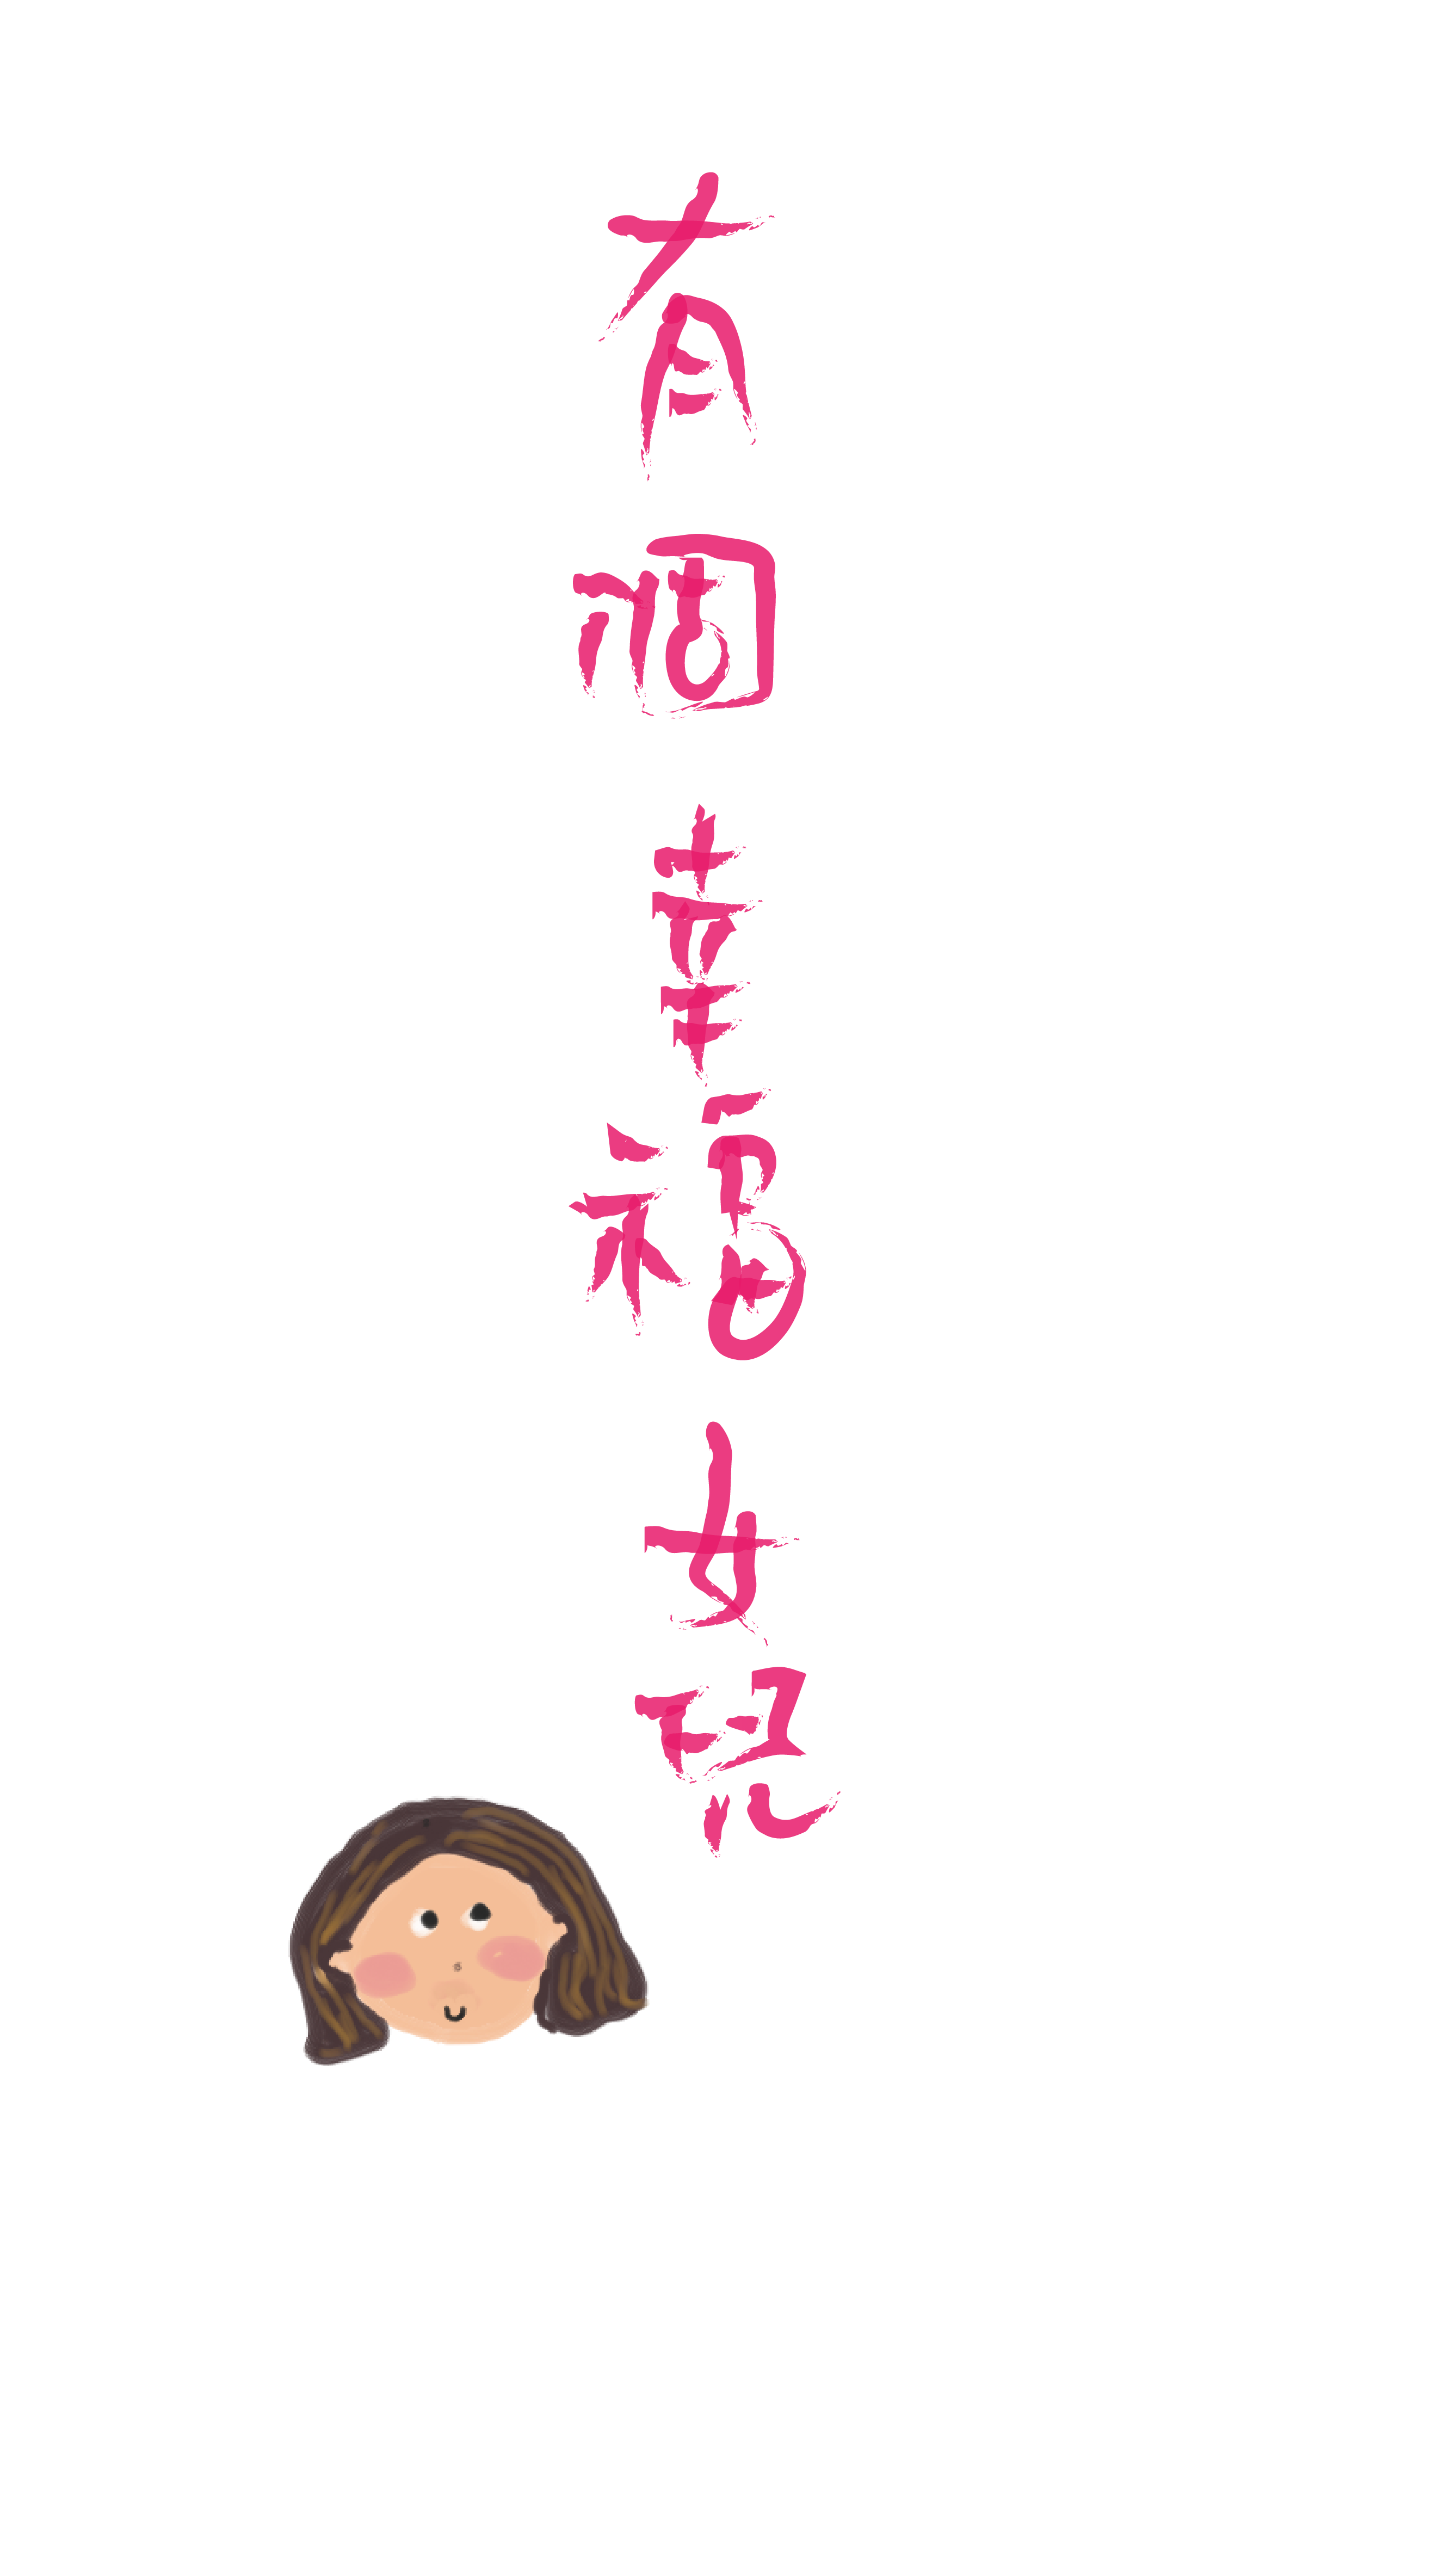 有個幸福女兒